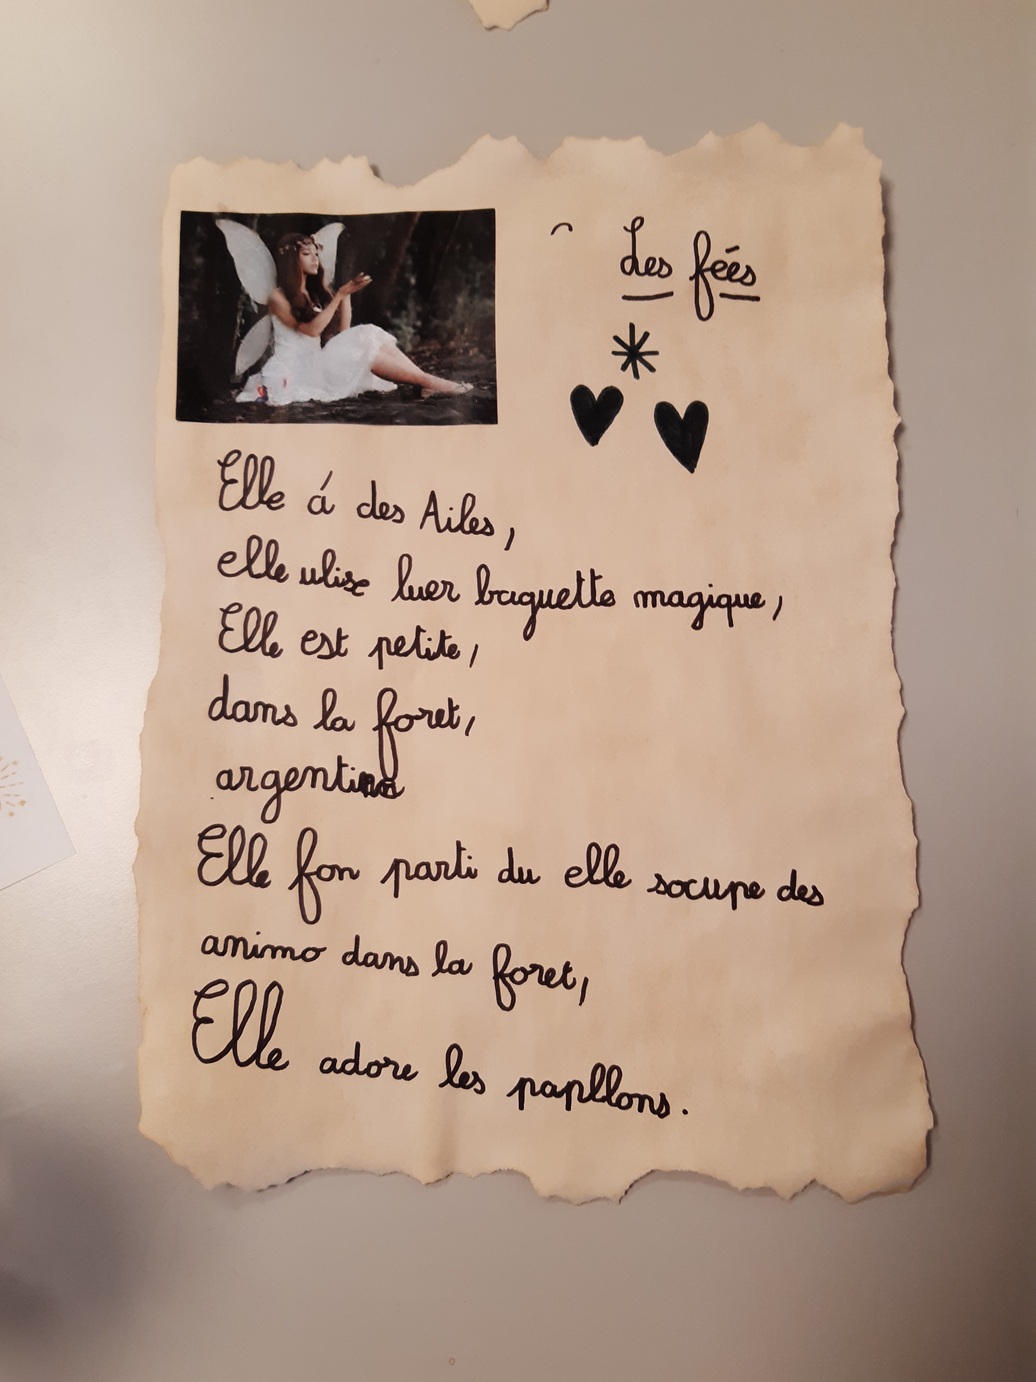 Les féés
Elle á des Ailes,
elle ulise luer baguette magique,
Elle est petite,
dans la foret,
Elle fon parti du elle socupe des
animo dans la foret,
Elle adore les papllons.